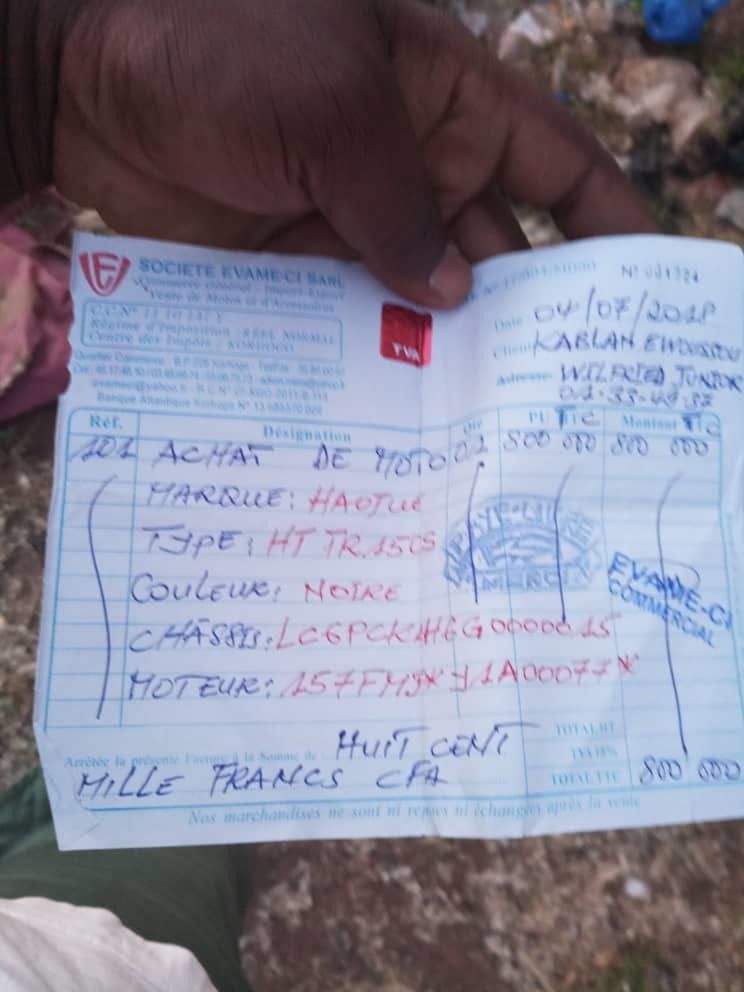 SOCIETE EVAME-CI SARL
Commerce Général - Import-Export
Vente de Motos et d'Accessoires
Régime d'Imposition : REEL NORMAL
Centre des Impôts : KORHOGO
N° 001724
Date 04/07/2018
Client KABLAN EWOUSSOU
Adresse WILFRIED JUNIOR
TVA
Réf. Désignation Qté PU TTC Montant TTC
101 ACHAT DE MOTO 01 800 000 800 000
MARQUE: HAOJUE
TYPE: HT TR150S
COULEUR: NOIRE
CHÂSSIS: LC6PCK4H6G0000015
MOTEUR: 157FMJ*Y1A00077*
EVAME-CI
COMMERCIAL
TOTAL HT
Arrêtée la présente Facture à la Somme de HUIT CENT
TVA 18%
MILLE FRANCS CFA
TOTAL TTC 800 000
Nos marchandises ne sont ni reprises ni échangées après la vente